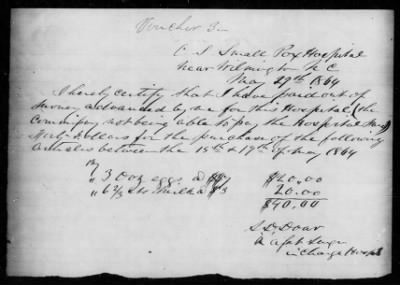 Voucher 3
C. S. Small Pox Hospital
near Wilmington N C
May 29th 1864
I hereby certify that I have paid out of
money advanced by me for this Hospital (the
Commissary not being able to pay the Hospital fund)
dollars for the purchase of the following
articles between the 15th & 19th of May 1864
3 doz eggs $20.00
6 2/3 Milk a $3 20.00
$40.00
S. D. Doar
in charge Hospt